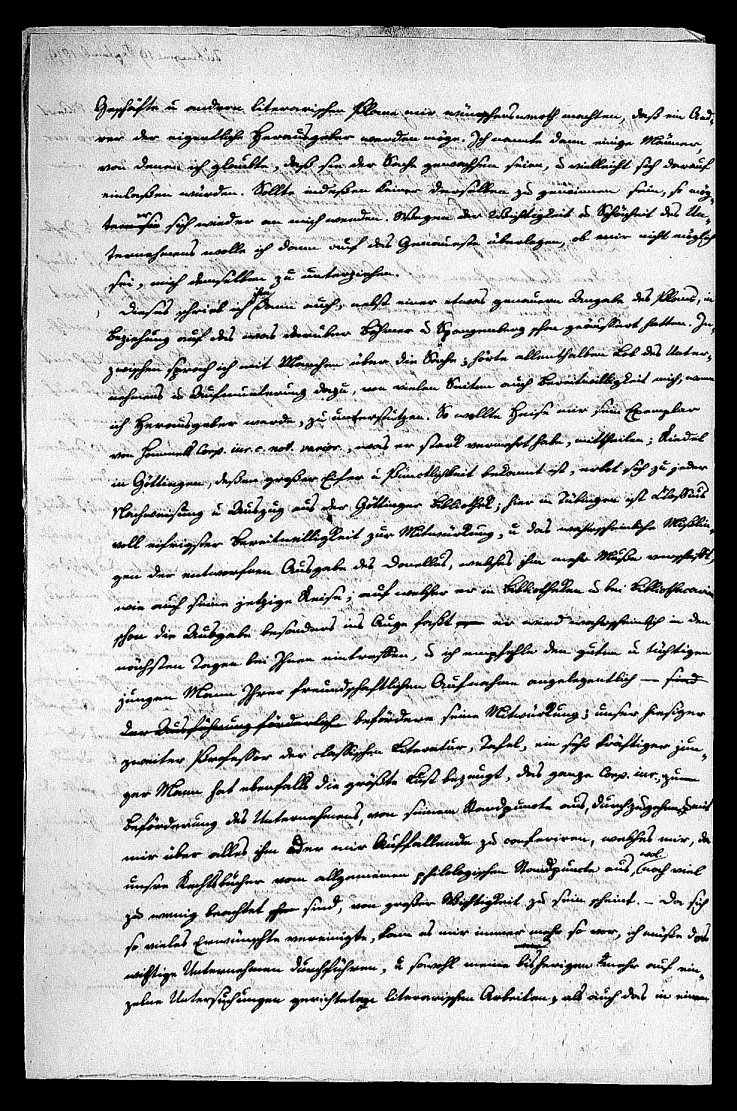 Geschäfte u andern literarischen Plane mir wünschenswerth machten, daß ein And-
rer der eigentliche Herausgeber werden möge. Ich nannte dann einige Männer,
von denen ich glaubte, daß sie der Sache gewachsen seien, u vielleicht sich darauf
einlaßen würden. Sollte indeßen keiner derselben zu gewinnen sein, so mög-
ten sie sich wieder an mich wenden. Wegen der Wichtigkeit u Schönheit des Un-
ternehmens wolle ich dann auf das Genaueste überlegen, ob mir nicht möglich
sei, mich demselben zu unterziehen.
Dieses schrieb ich ihm denn auch, nebst einer etwas genauern Angabe des Plans, in
Beziehung auf das was darüber Böhmer u Spangenberg schon geäussert hatten. In-
zwischen sprach ich mit Manchen über die Sache; hörte allenthalben Lob des Unter-
nehmens u Aufmunterung dazu, von vielen Seiten auch Bereitwilligkeit mich, wenn
ich Herausgeber werde, zu unterstützen. So wollte Heise mir sein Exemplar
von Hommels Corp. iur. c. not. varior., was er stark vermehrt habe, mittheilen; Riedel
in Göttingen, deßen großer Eifer u Pünctlichkeit bekannt ist, erbot sich zu jeder
Nachweisung u Auszug aus der Göttinger Bibliothek; hier in Tübingen ist Clossius
voll eifrigster Bereitwilligkeit zur Mitwürkung, u das wahrscheinliche Mißlin-
gen der entworfnen Ausgabe des Donellus, welches ihm mehr Muße verschafft,
wie auch seine jetzige Reise, auf welcher er in Bibliotheken u bei Bibliothecaren
schon die Ausgabe besonders ins Auge faßt er wird wahrscheinlich in den
nächsten Tagen bei Ihnen eintreffen, u ich empfehle den guten u tüchtigen
jungen Mann Ihrer freundschaftlichen Aufnahme angelegentlich — sind
der Ausführung förderlich befördern seine Mitwürkung; unser hiesiger
zweiter Professor der classischen Literatur, Tafel, ein sehr kräftiger jun-
ger Mann hat ebenfalls die größte Lust bezeugt, das ganze Corp. iur. zum
Beförderung des Unternehmens, von seinem Standpuncte aus, durchzugehen, u mit
mir über alles ihm oder mir Auffallende zu conferiren, welches mir, da
unsre Rechtsbücher vom allgemeinen philologischen Standpuncte aus, wol noch viel
zu wenig beachtet sind, von großer Wichtigkeit zu sein scheint. — Da sich
so vieles Erwünschte vereinigte, kam es mir immer mehr so vor, ich müße das
wichtige Unternehmen durchführen, u sowohl meine bisherigen mehr auf ein-
zelne Untersuchungen gerichteten literarischen Arbeiten, als auch das in einem